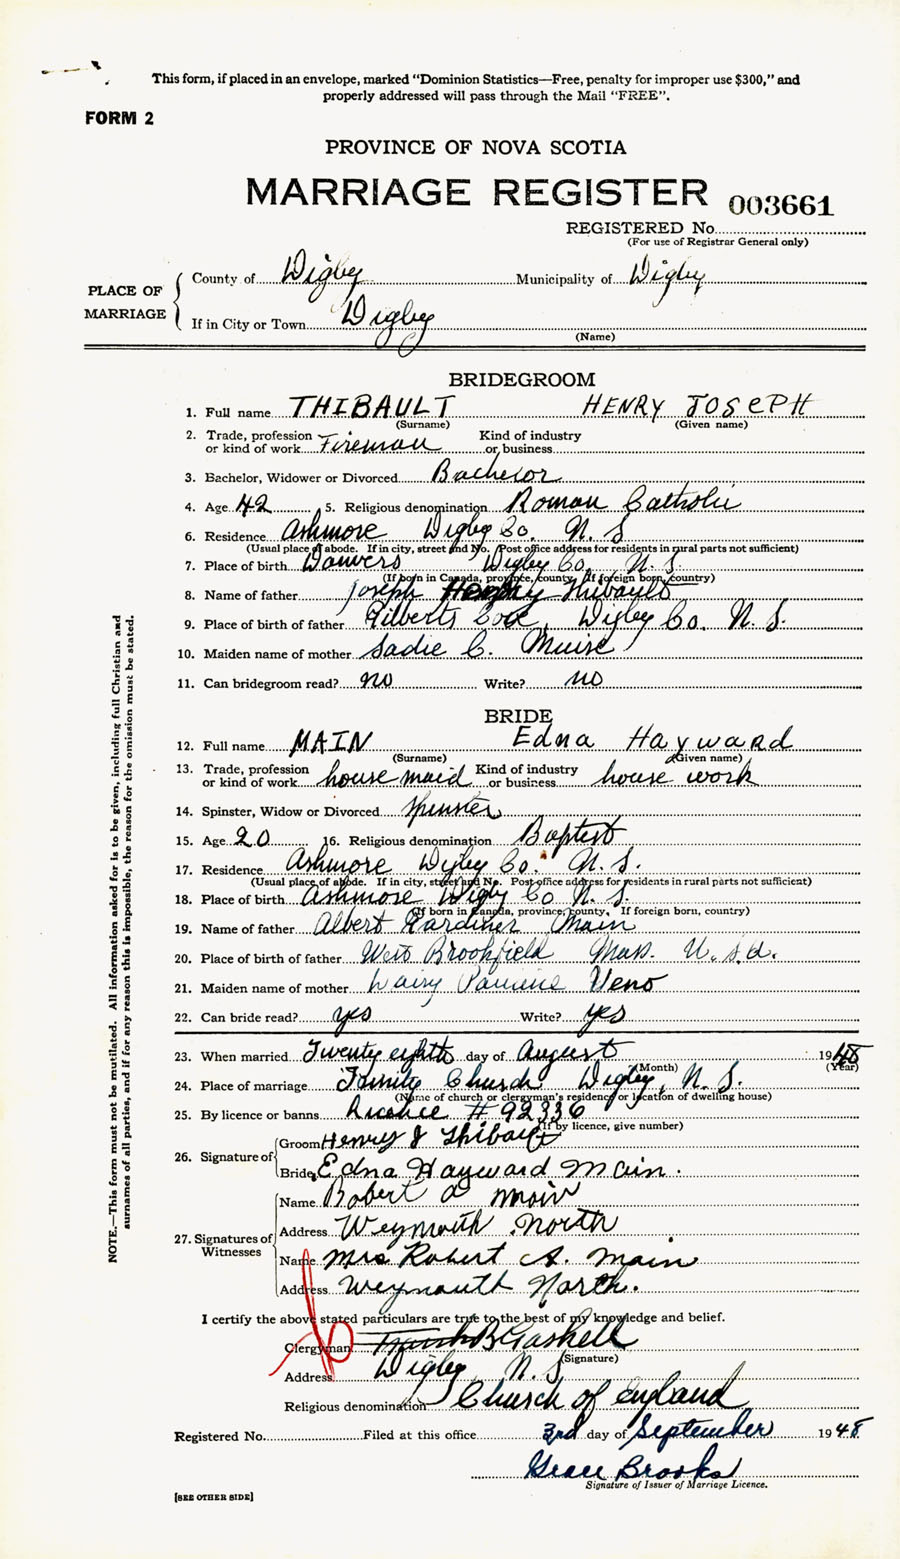 This form, if placed in an envelope, marked "Dominion Statistics—Free, penalty for improper use $300," and
properly addressed will pass through the Mail "FREE".
FORM 2
PROVINCE OF NOVA SCOTIA
MARRIAGE REGISTER 003661
REGISTERED No.
(For use of Registrar General only)
PLACE OF MARRIAGE
County of Digby Municipality of Digby
If in City or Town Digby
(Name)
BRIDEGROOM
1. Full name THIBAULT HENRY JOSEPH
(Surname) (Given name)
2. Trade, profession or kind of work Fireman Kind of industry or business
3. Bachelor, Widower or Divorced Bachelor
4. Age 42 5. Religious denomination Roman Catholic
6. Residence Ashmore Digby Co. N. S
(Usual place of abode. If in city, street and No. Post office address for residents in rural parts not sufficient)
7. Place of birth Danvers Digby Co. N. S.
(If born in Canada, province, county. If foreign born, country)
8. Name of father Joseph Thibault
9. Place of birth of father Gilberts Cove Digby Co. N. S.
10. Maiden name of mother Sadie C. Muise
11. Can bridegroom read? no Write? no
BRIDE
12. Full name MAIN Edna Hayward
(Surname) (Given name)
13. Trade, profession or kind of work housemaid Kind of industry or business house work
14. Spinster, Widow or Divorced Spinster
15. Age 20 16. Religious denomination Baptist
17. Residence Ashmore Digby Co. N. S.
(Usual place of abode. If in city, street and No. Post office address for residents in rural parts not sufficient)
18. Place of birth Ashmore Digby Co N. S.
(If born in Canada, province, county. If foreign born, country)
19. Name of father Albert Gardiner Main
20. Place of birth of father West Brookfield Mass. U. S. A.
21. Maiden name of mother Veno
22. Can bride read? yes Write? yes
23. When married Twenty eighth day of August 1948
(Month) (Year)
24. Place of marriage Trinity Church Digby, N. S.
(Name of church or clergyman's residence or location of dwelling house)
25. By licence or banns Licence # 92336
(If by licence, give number)
26. Signature of
Groom Henry J Thibault
Bride Edna Hayward Main.
27. Signatures of Witnesses
Name Robert A Main
Address Weymouth North
Name Mrs Robert A. Main
Address Weymouth North.
I certify the above stated particulars are true to the best of my knowledge and belief.
Clergyman B Gaskell
(Signature)
Address Digby, N. S
Religious denomination Church of England
Registered No. Filed at this office 3rd day of September 1948
Grace Brooks
Signature of Issuer of Marriage Licence.
[SEE OTHER SIDE]
NOTE.—This form must not be mutilated. All information asked for is to be given, including full Christian and
surnames of all parties, and if for any reason this is impossible, the reason for the omission must be stated.